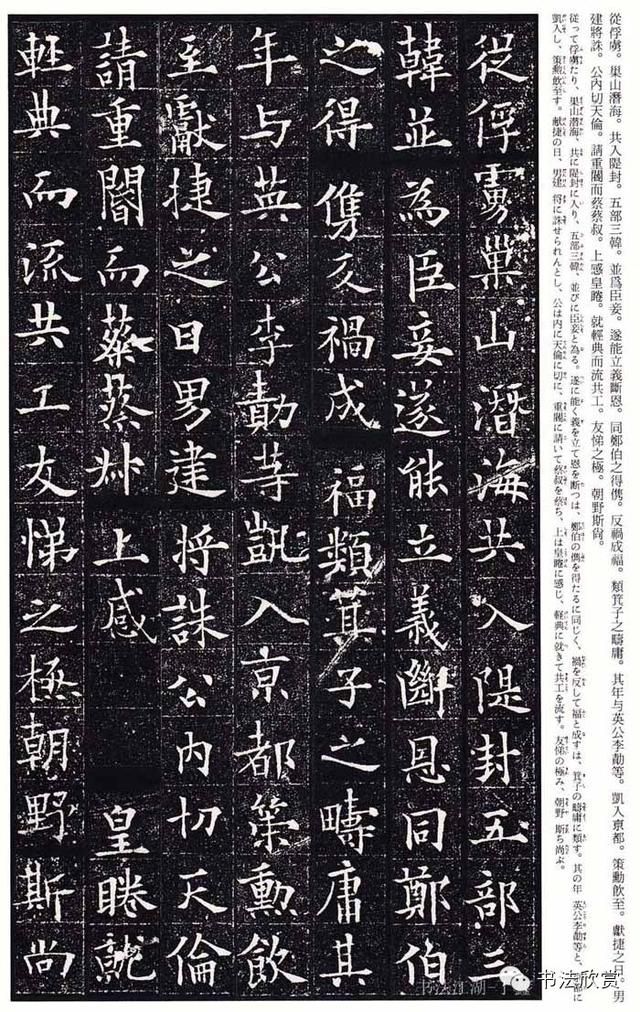 從俘虜。巢山潛海。共入隄封。五部三韓。並爲臣妾。遂能立義斷恩。同鄭伯之得儁。反禍成福。類箕子之疇庸。其年与英公李勣等。凱入京都。策勳飮至。獻捷之日。男
建將誅。公內切天倫。請重閽而蔡蔡叔。上感皇睠。就輕典而流共工。友悌之極。朝野斯尚。
従って俘虜たり、巢山潛海、共に隄封に入り、五部三韓、並びに臣妾と為る。遂に能く義を立て恩を断つは、鄭伯の儁を得たるに同じく、禍を反して福と成すは、箕子の疇庸に類す。其の年 英公李勣等と、京都に
凱入し、策勳飮至す。献捷の日、男建 将に誅せられんとし、公は内に天倫に切に、重閽に請いて蔡叔を蔡ち、上は皇睠に感じ、輕典に就きて共工を流す。友悌の極み、朝野 斯ち尚ぶ。
從俘虜巢山潛海共入隄封五部三
韓並為臣妾遂能立義斷恩同鄭伯
之得儁反禍成福類箕子之疇庸其
年与英公李勣等凱入京都策勳飲
至獻捷之日男建將誅公內切天倫
請重閽而蔡蔡叔上感皇睠就
輕典而流共工友悌之極朝野斯尚
书法江湖
书法欣赏